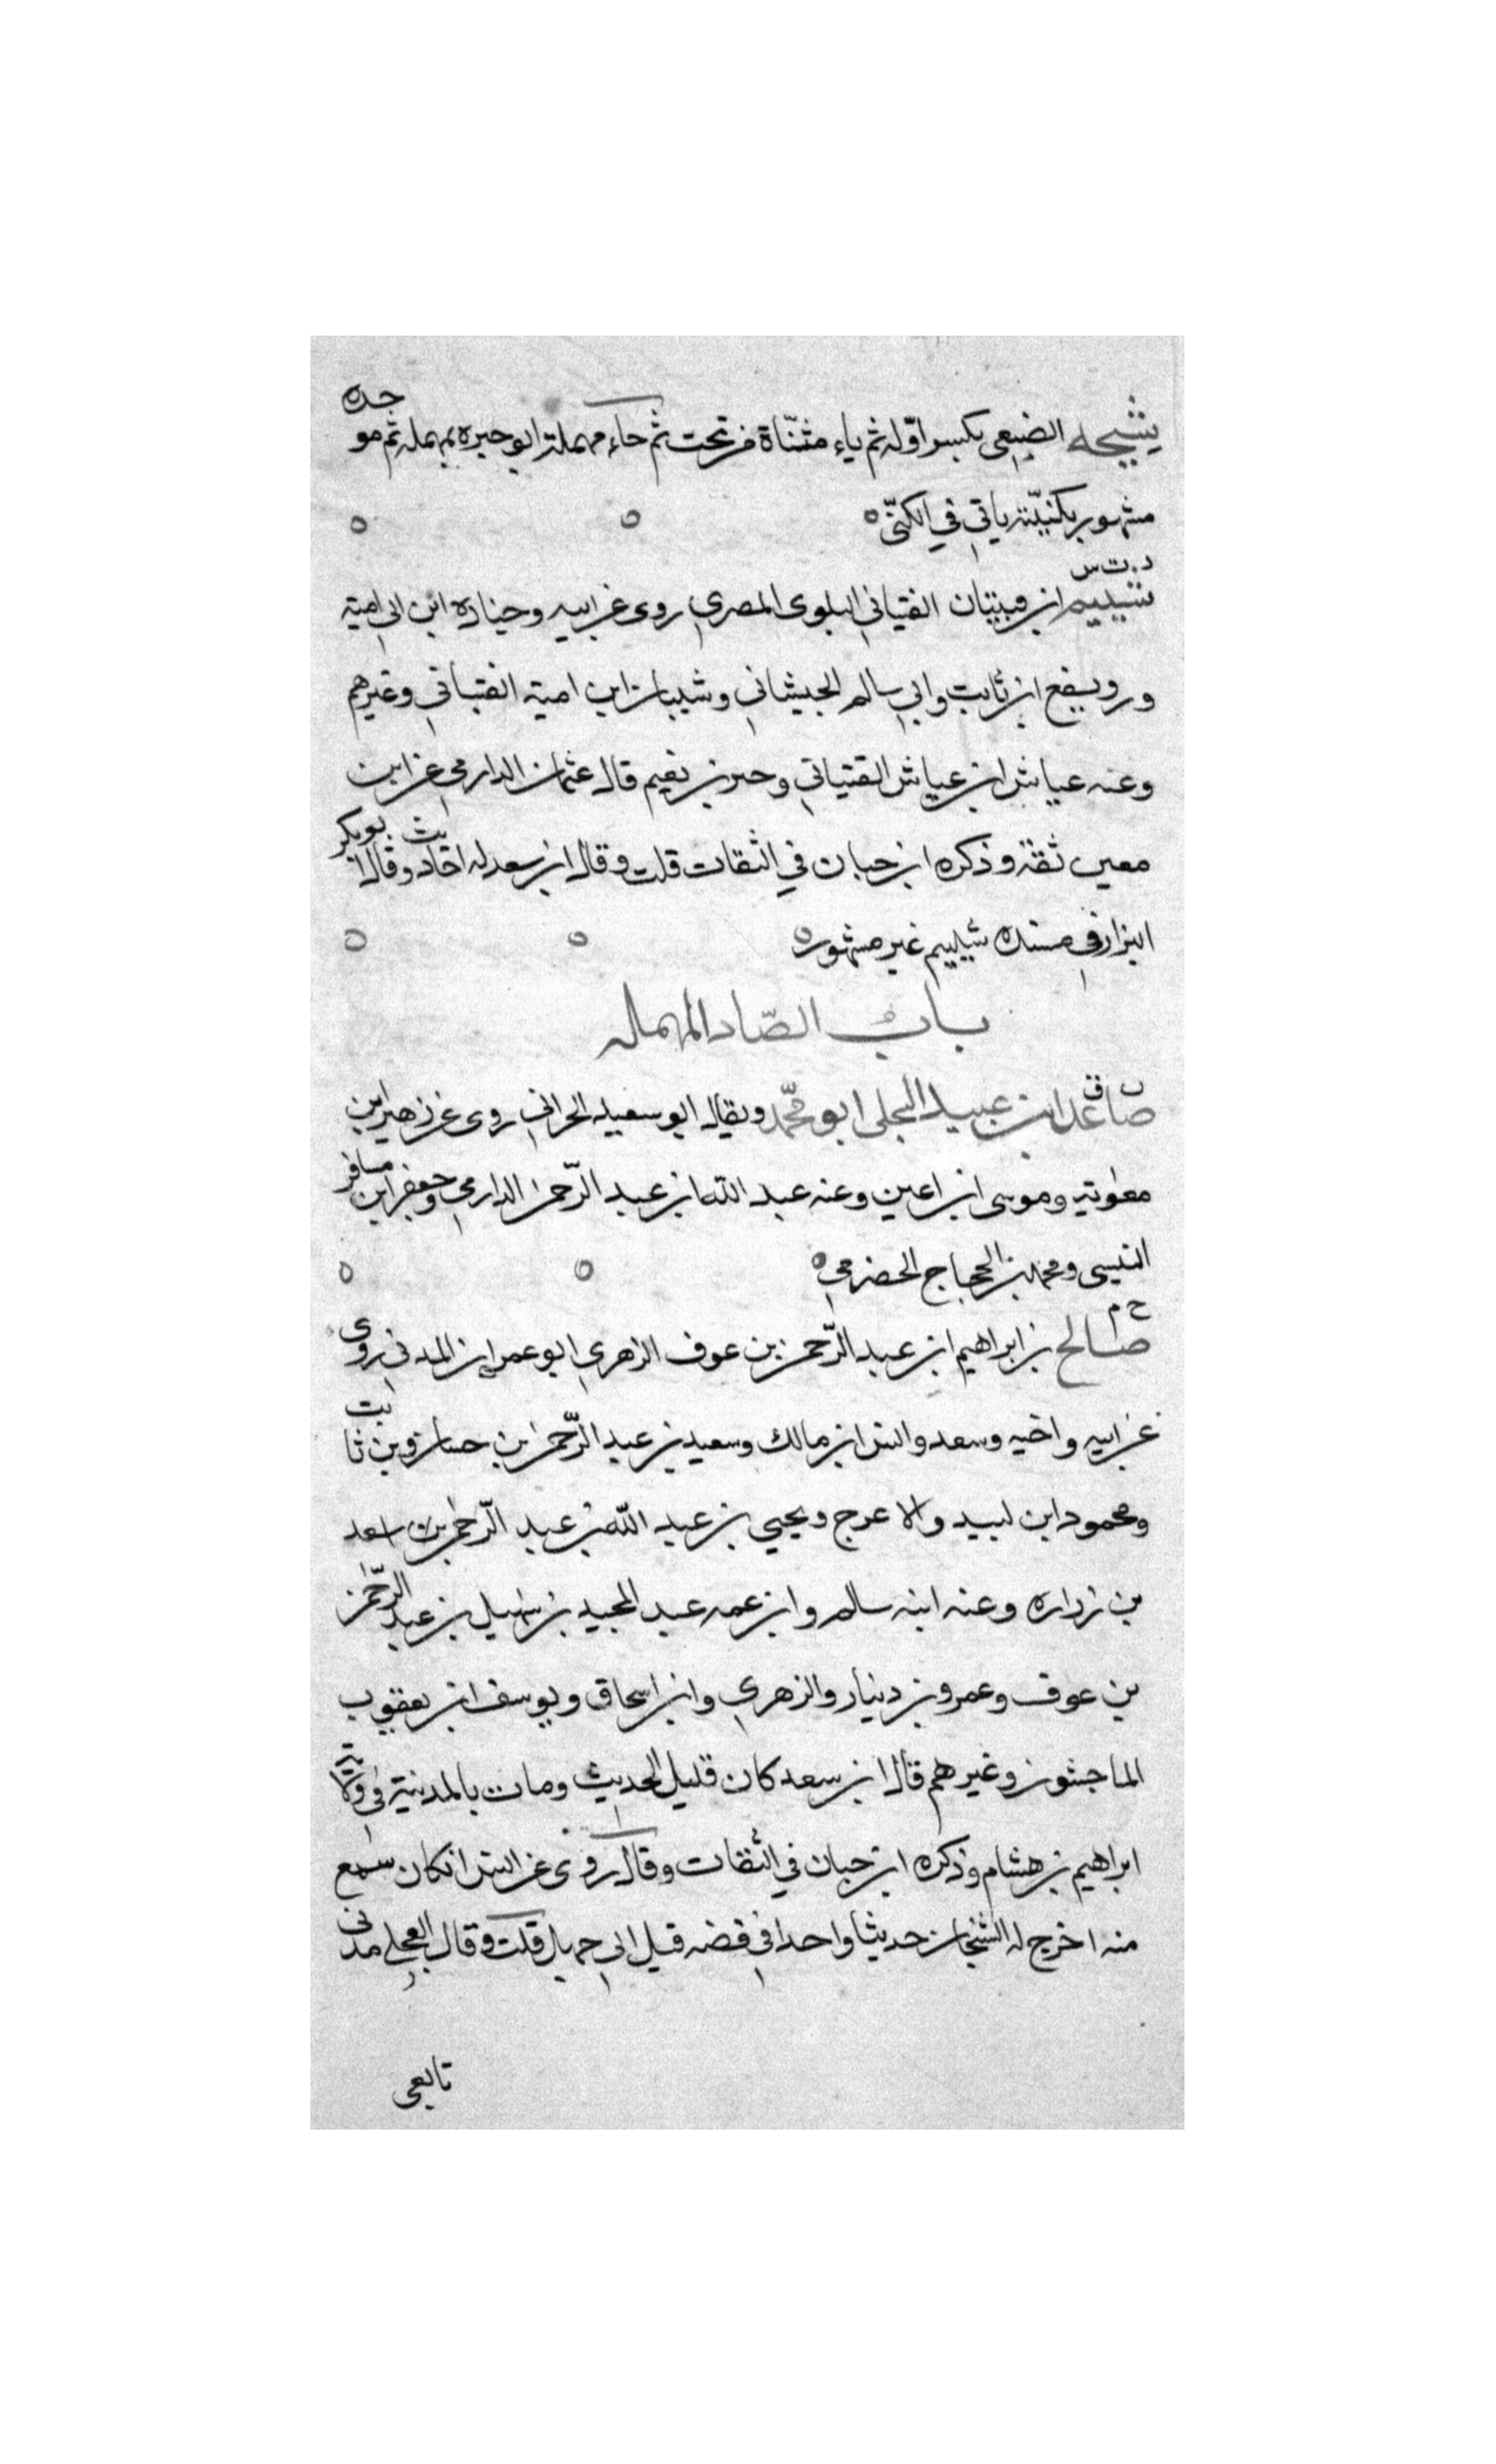 شيحه الضبعي بكسر اوّله ثم ياء مثنّاة من تحت ثم حاء مهملة ابو حبره بمهمله ثم موحده
مشهور بكنيّته ياتي في الكنّى ه ه ه
د.ت س
شييم ابن بيتان القتباني البلوى المصري روى عن ابيه وجناده ابن ابي امية
ورويفع ابن ثابت وابي سالم الجيشاني وشيبان ابن امية القتباني وغيرهم
وعنه عياش ابن عياش القتباني وخير بن نعيم قال عثمان الدارمي عن ابن
معين ثقة وذكره ابن حبان في الثقات قلت وقال ابن سعد له احاديث وقال ابو بكر
البزار في مسنده شييم غير مشهور ه ه ه
باب الصّاد المهمله
ق
صاعد ابن عبيد البجلي ابو محمّد ويقال ابو سعيد الحراني روى عن زهير ابن
معوية وموسى ابن اعين وعنه عبد الله ابن عبد الرّحمن الدارمي وجعفر ابن مسافر
التنيسى ومحمد بن الحجاج الحضرمي ه ه ه
خ م
صالح بن ابراهيم ابن عبد الرّحمن بن عوف الزهري ابو عمران المدني روى
عن ابيه واخيه وسعد وانس ابن مالك وسعيد بن عبد الرّحمن بن حسان وبن ثابت
ومحمود ابن لبيد والاعرج ويحيى بن عبد الله بن عبد الرّحمن بن اسعد
بن زراره وعنه ابنه سالم وابن عمه عبد المجيد بن سهيل بن عبد الرّحمن
بن عوف وعمرو بن دينار والزهري وابن اسحاق ويوسف ابن يعقوب
الماجشون وغيرهم قال ابن سعد كان قليل الحديث ومات بالمدينة في ولاية
ابراهيم بن هشام وذكره ابن حبان في الثقات وقال روى عن انس ان كان سمع
منه اخرج له الشيخان حديثا واحدا في قصه قتل ابي جهل قلت وقال العجلي مدني
تابعى